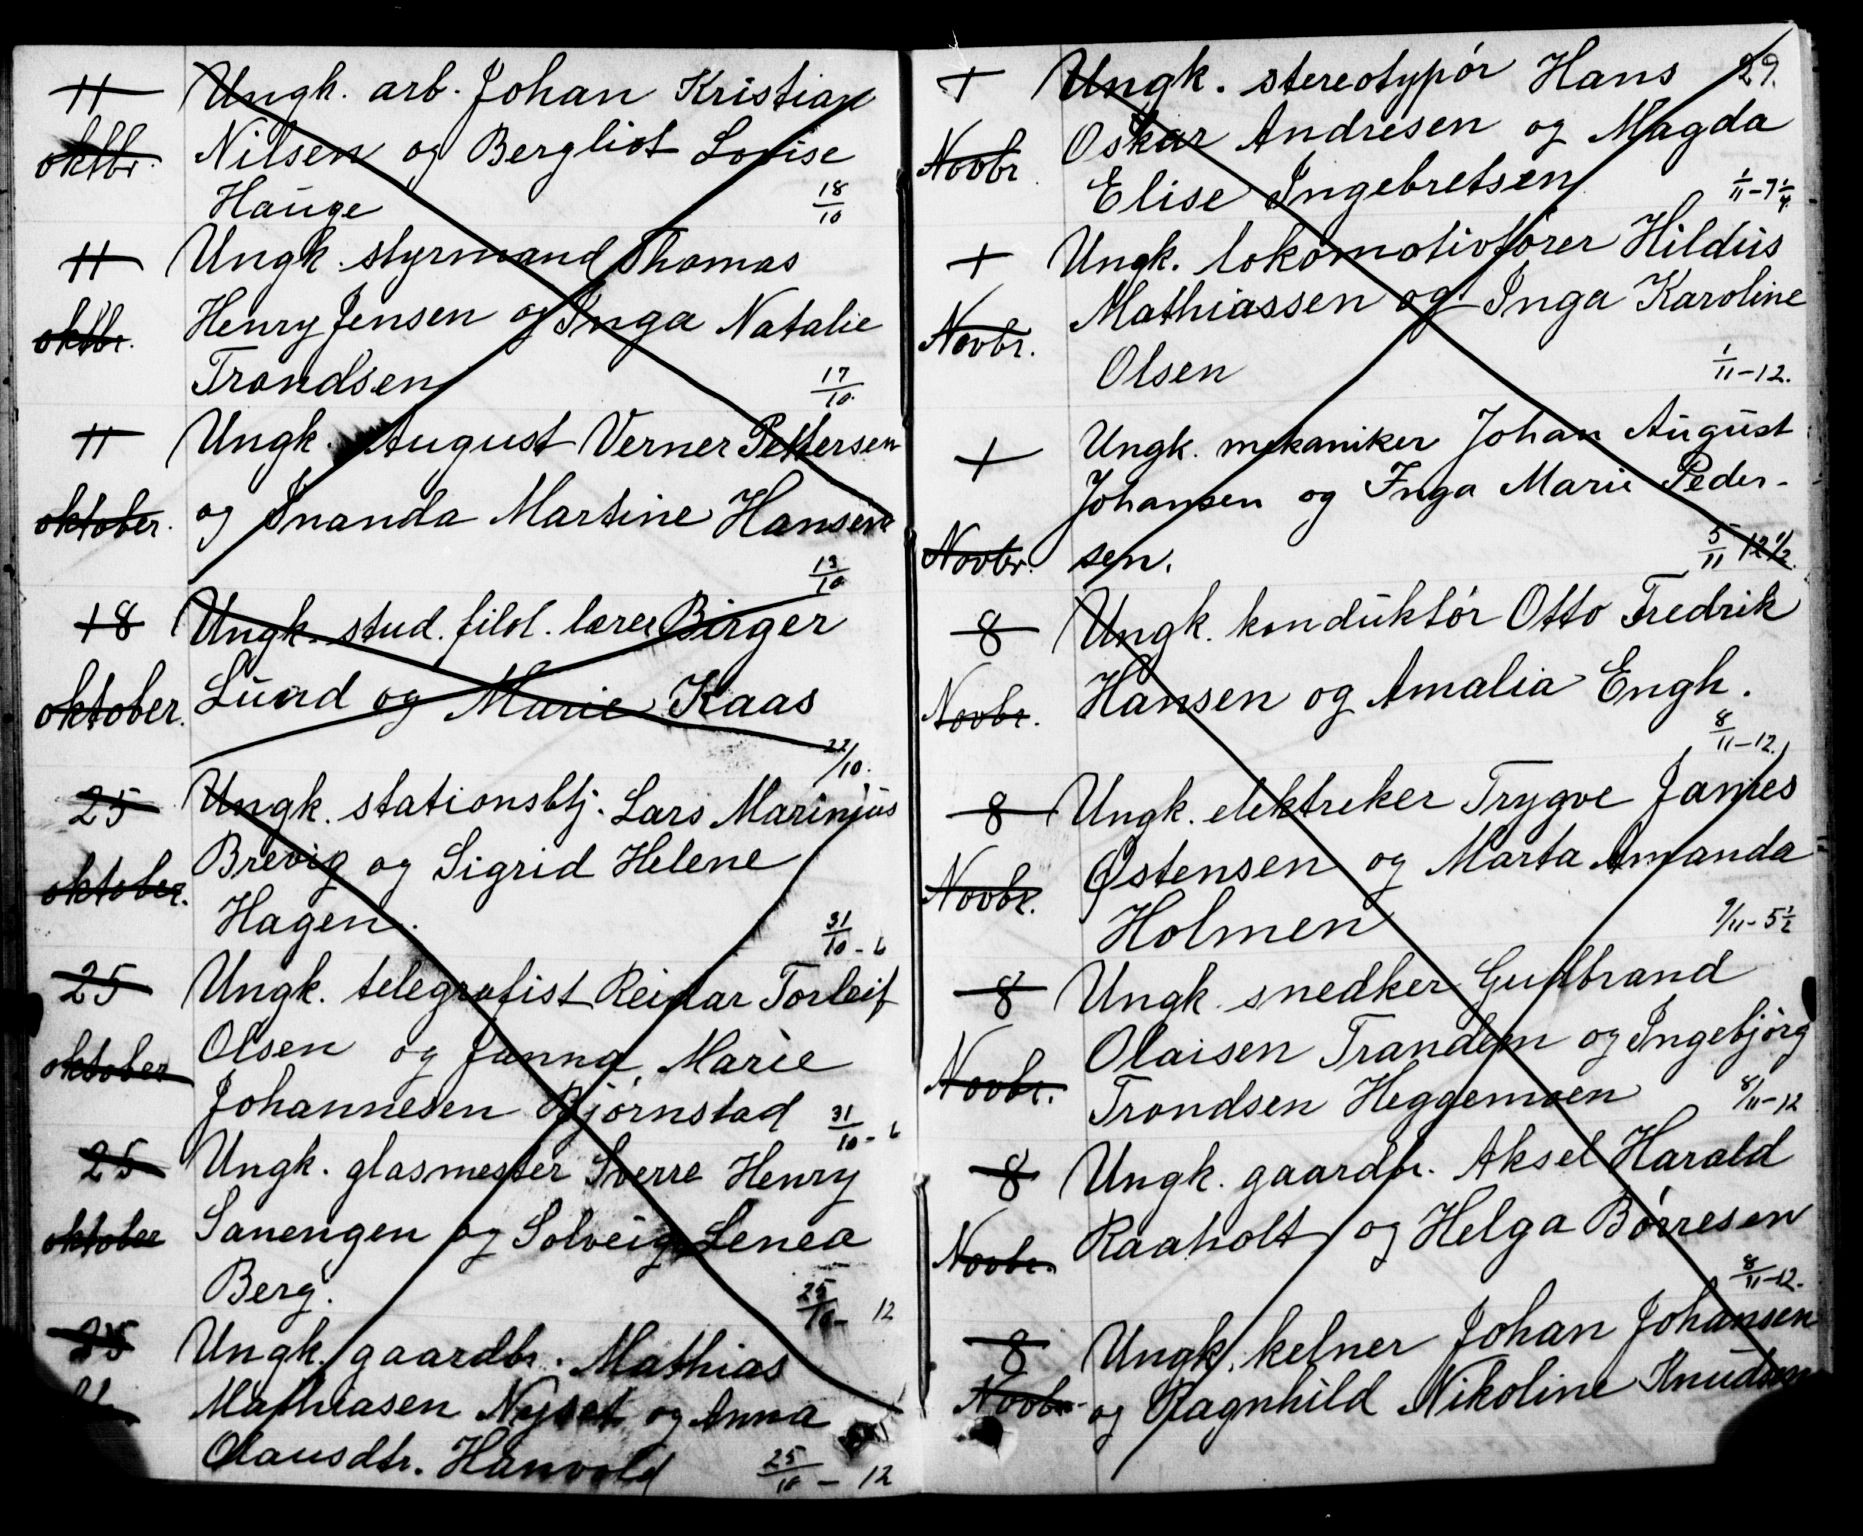 11 Ungk. arb. Johan Kristian
oktbr. Nilsen og Bergliot Lovise
Hauge 18/10
11 Ungk. styrmand Thomas
oktbr. Henry Jensen og Inga Natalie
Trondsen 17/10
11 Ungk. August Verner Pettersen
oktober. og Inanda Martine Hansen
/10
18 Ungk. stud. filol. lærer Birger
oktober. Lund og Marie Kaas
22/10.
25 Ungk. stationsbtj. Lars Marinius
oktober. Brevig og Sigrid Helene
Hagen. 31/10 - 6
25 Ungk. telegrafist Reidar Torleif
oktober Olsen og Janna Marie
Johannesen Bjørnstad 31/10 - 6
25 Ungk. glasmester Sverre Henry
oktober Sanengen og Solveig Lenea
Berg. 25/10 - 12
25 Ungk. gaardbr. Mathias
Mathiasen og Anna
Olausdtr. Hanvold 25/10 - 12
29.
1 Ungk. stereotypør Hans
Novbr Oskar Andresen og Magda
Elise Ingebretsen 1/11 - 7 1/4
1 Ungk. lokomotivfører Hildus
Novbr. Mathiassen og Inga Karoline
Olsen 1/11 - 12.
1 Ungk. mekaniker Johan August
Johansen og Inga Marie Peder-
Novbr. sen. 5/11 12 1/2
8 Ungk. konduktør Otto Fredrik
Novbr. Hansen og Amalia Engh.
8/11 - 12.
8 Ungk. elektreker Trygve James
Novbr. Østensen og Marta Amanda
Holmen 9/11 - 5 1/2
8 Ungk. snedker Gudbrand
Novbr. Olaisen Trandem og Ingebjørg
Trondsen Heggemoen 8/11 - 12
8 Ungk. gaardbr. Aksel Harald
Novbr. Raaholt og Helga Børresen
8/11 - 12.
8 Ungk. kelner Johan Johansen
Novbr. og Ragnhild Nikoline Knudsen